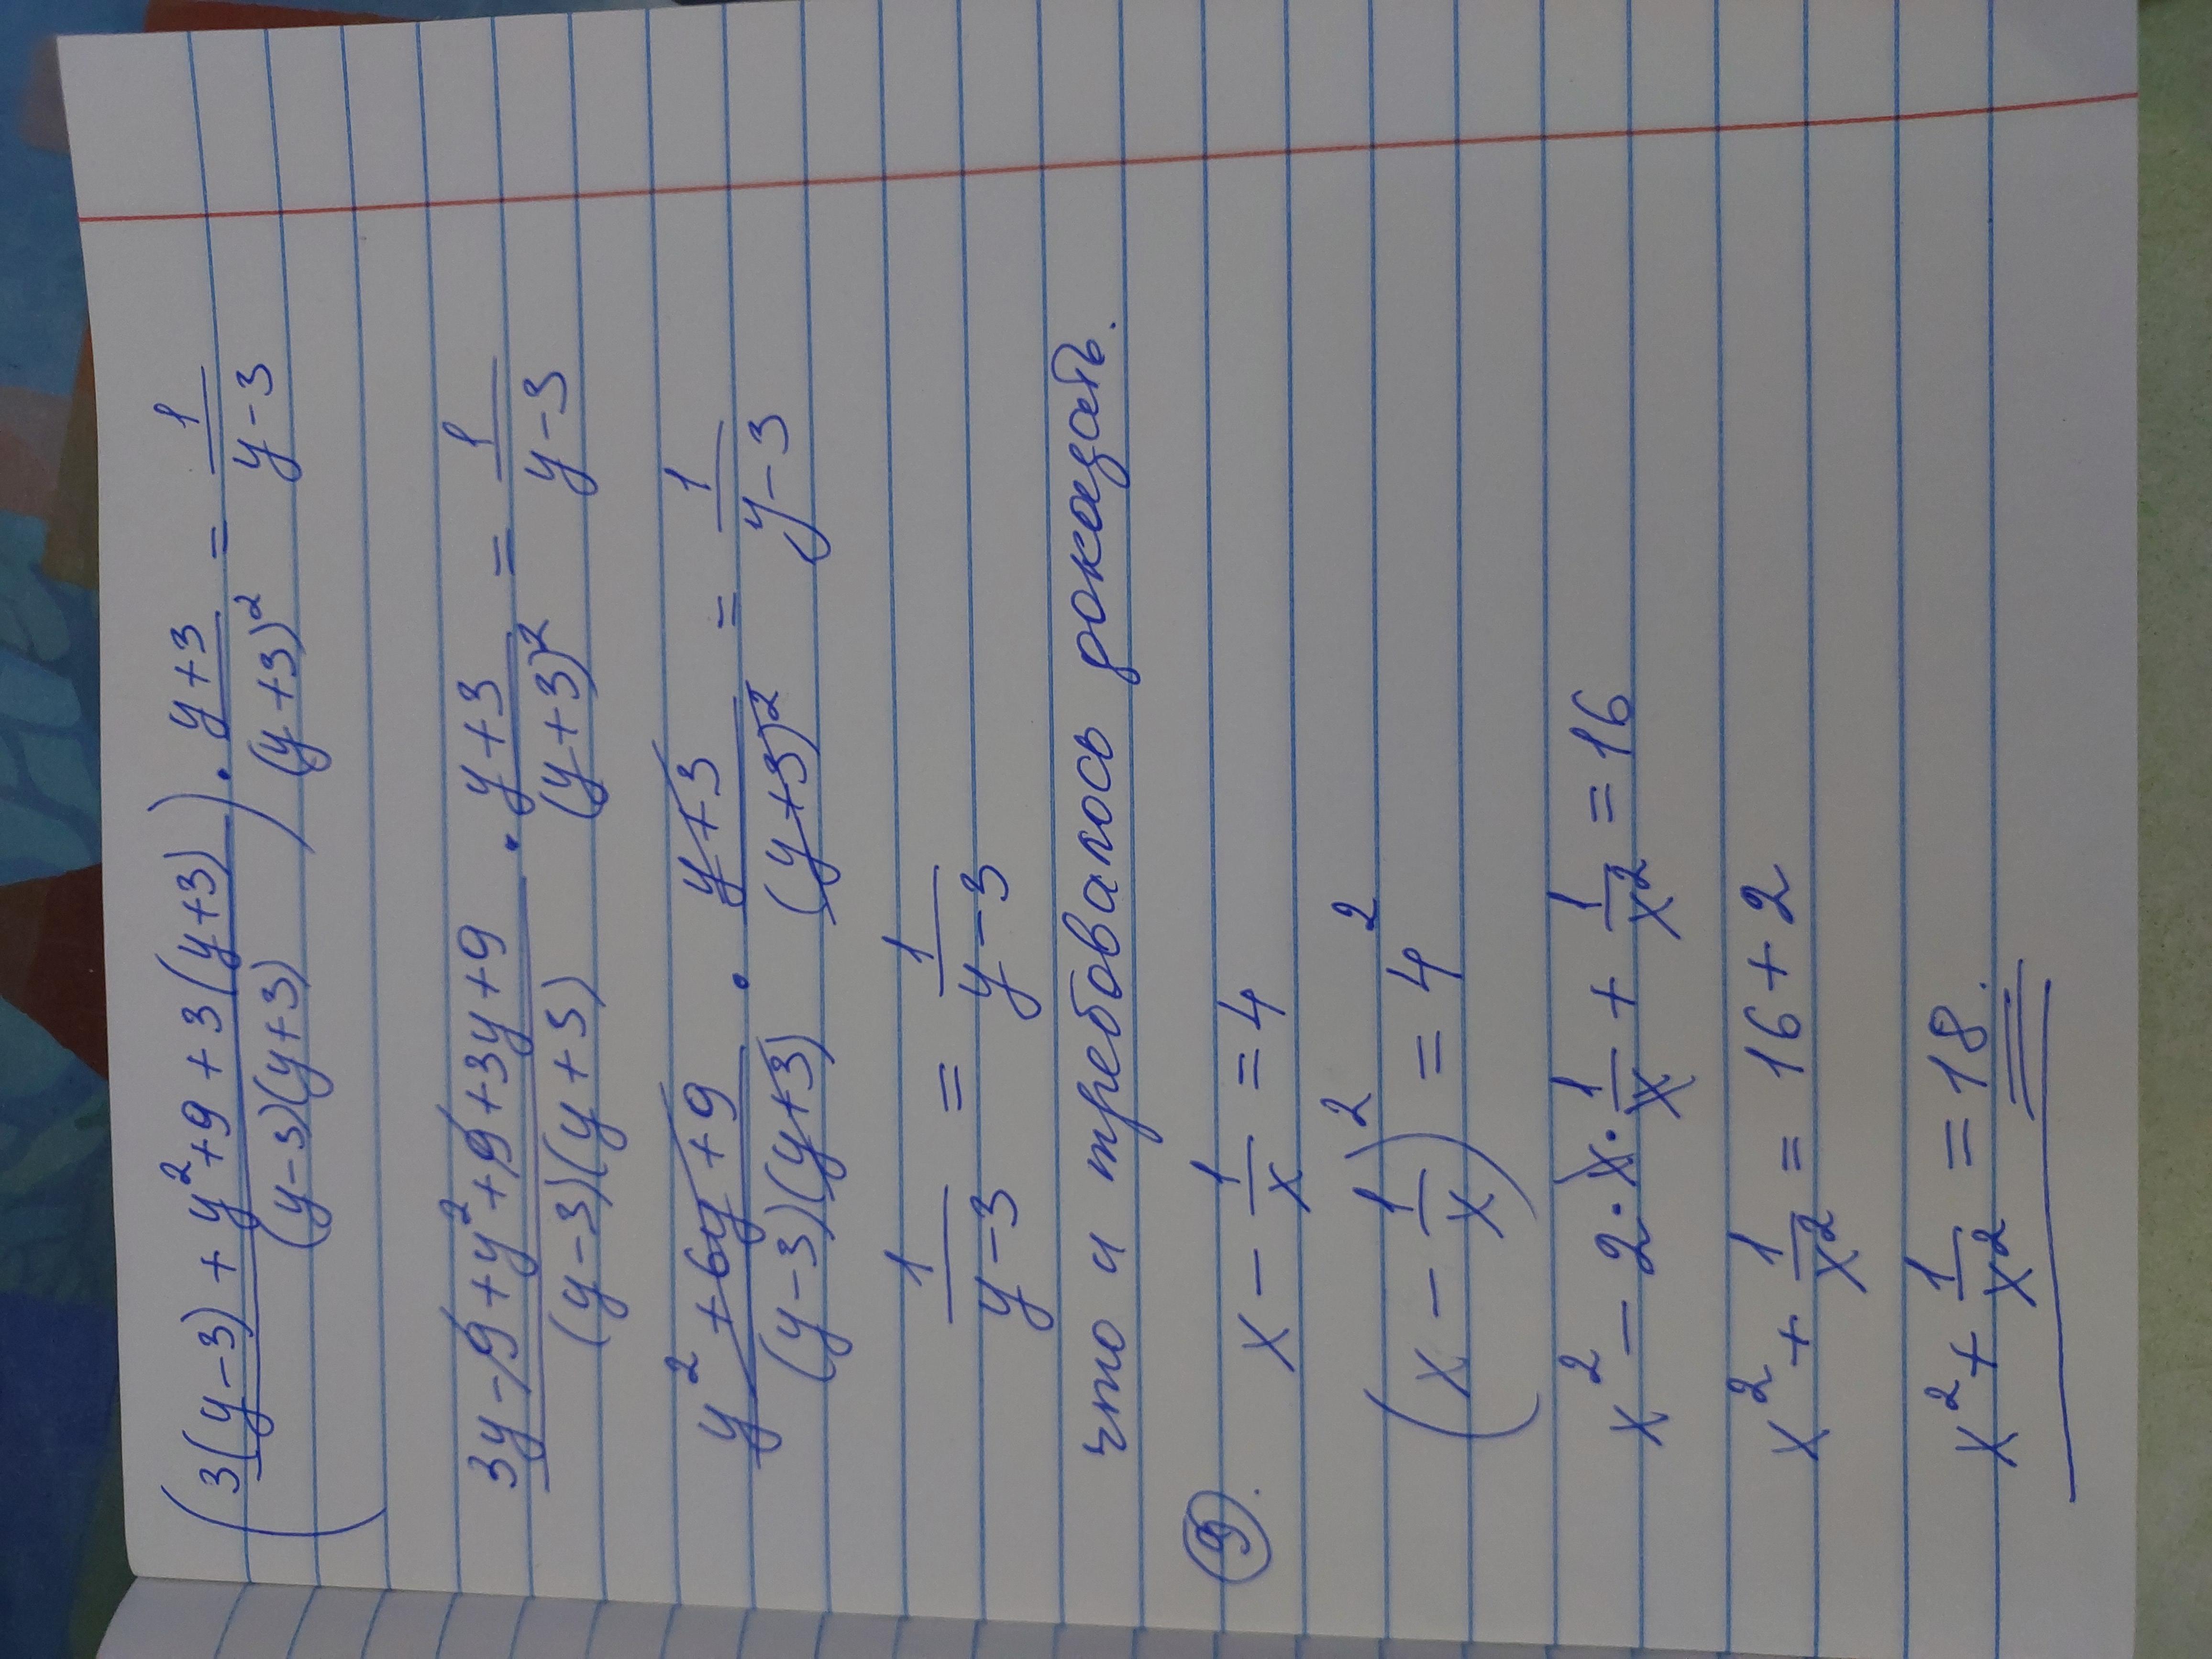 (3(y-3) + y²+9 + 3(y+3))/((y-3)(y+3)) · (y+3)/(y+3)² = 1/(y-3)
(3y-9+y²+9+3y+9)/((y-3)(y+3)) · (y+3)/(y+3)² = 1/(y-3)
(y²+6y+9)/((y-3)(y+3)) · (y+3)/(y+3)² = 1/(y-3)
1/(y-3) = 1/(y-3)
что и требовалось доказать.
③. x - 1/x = 4
(x - 1/x)² = 4²
x² - 2·x·1/x + 1/x² = 16
x² + 1/x² = 16+2
x² + 1/x² = 18.